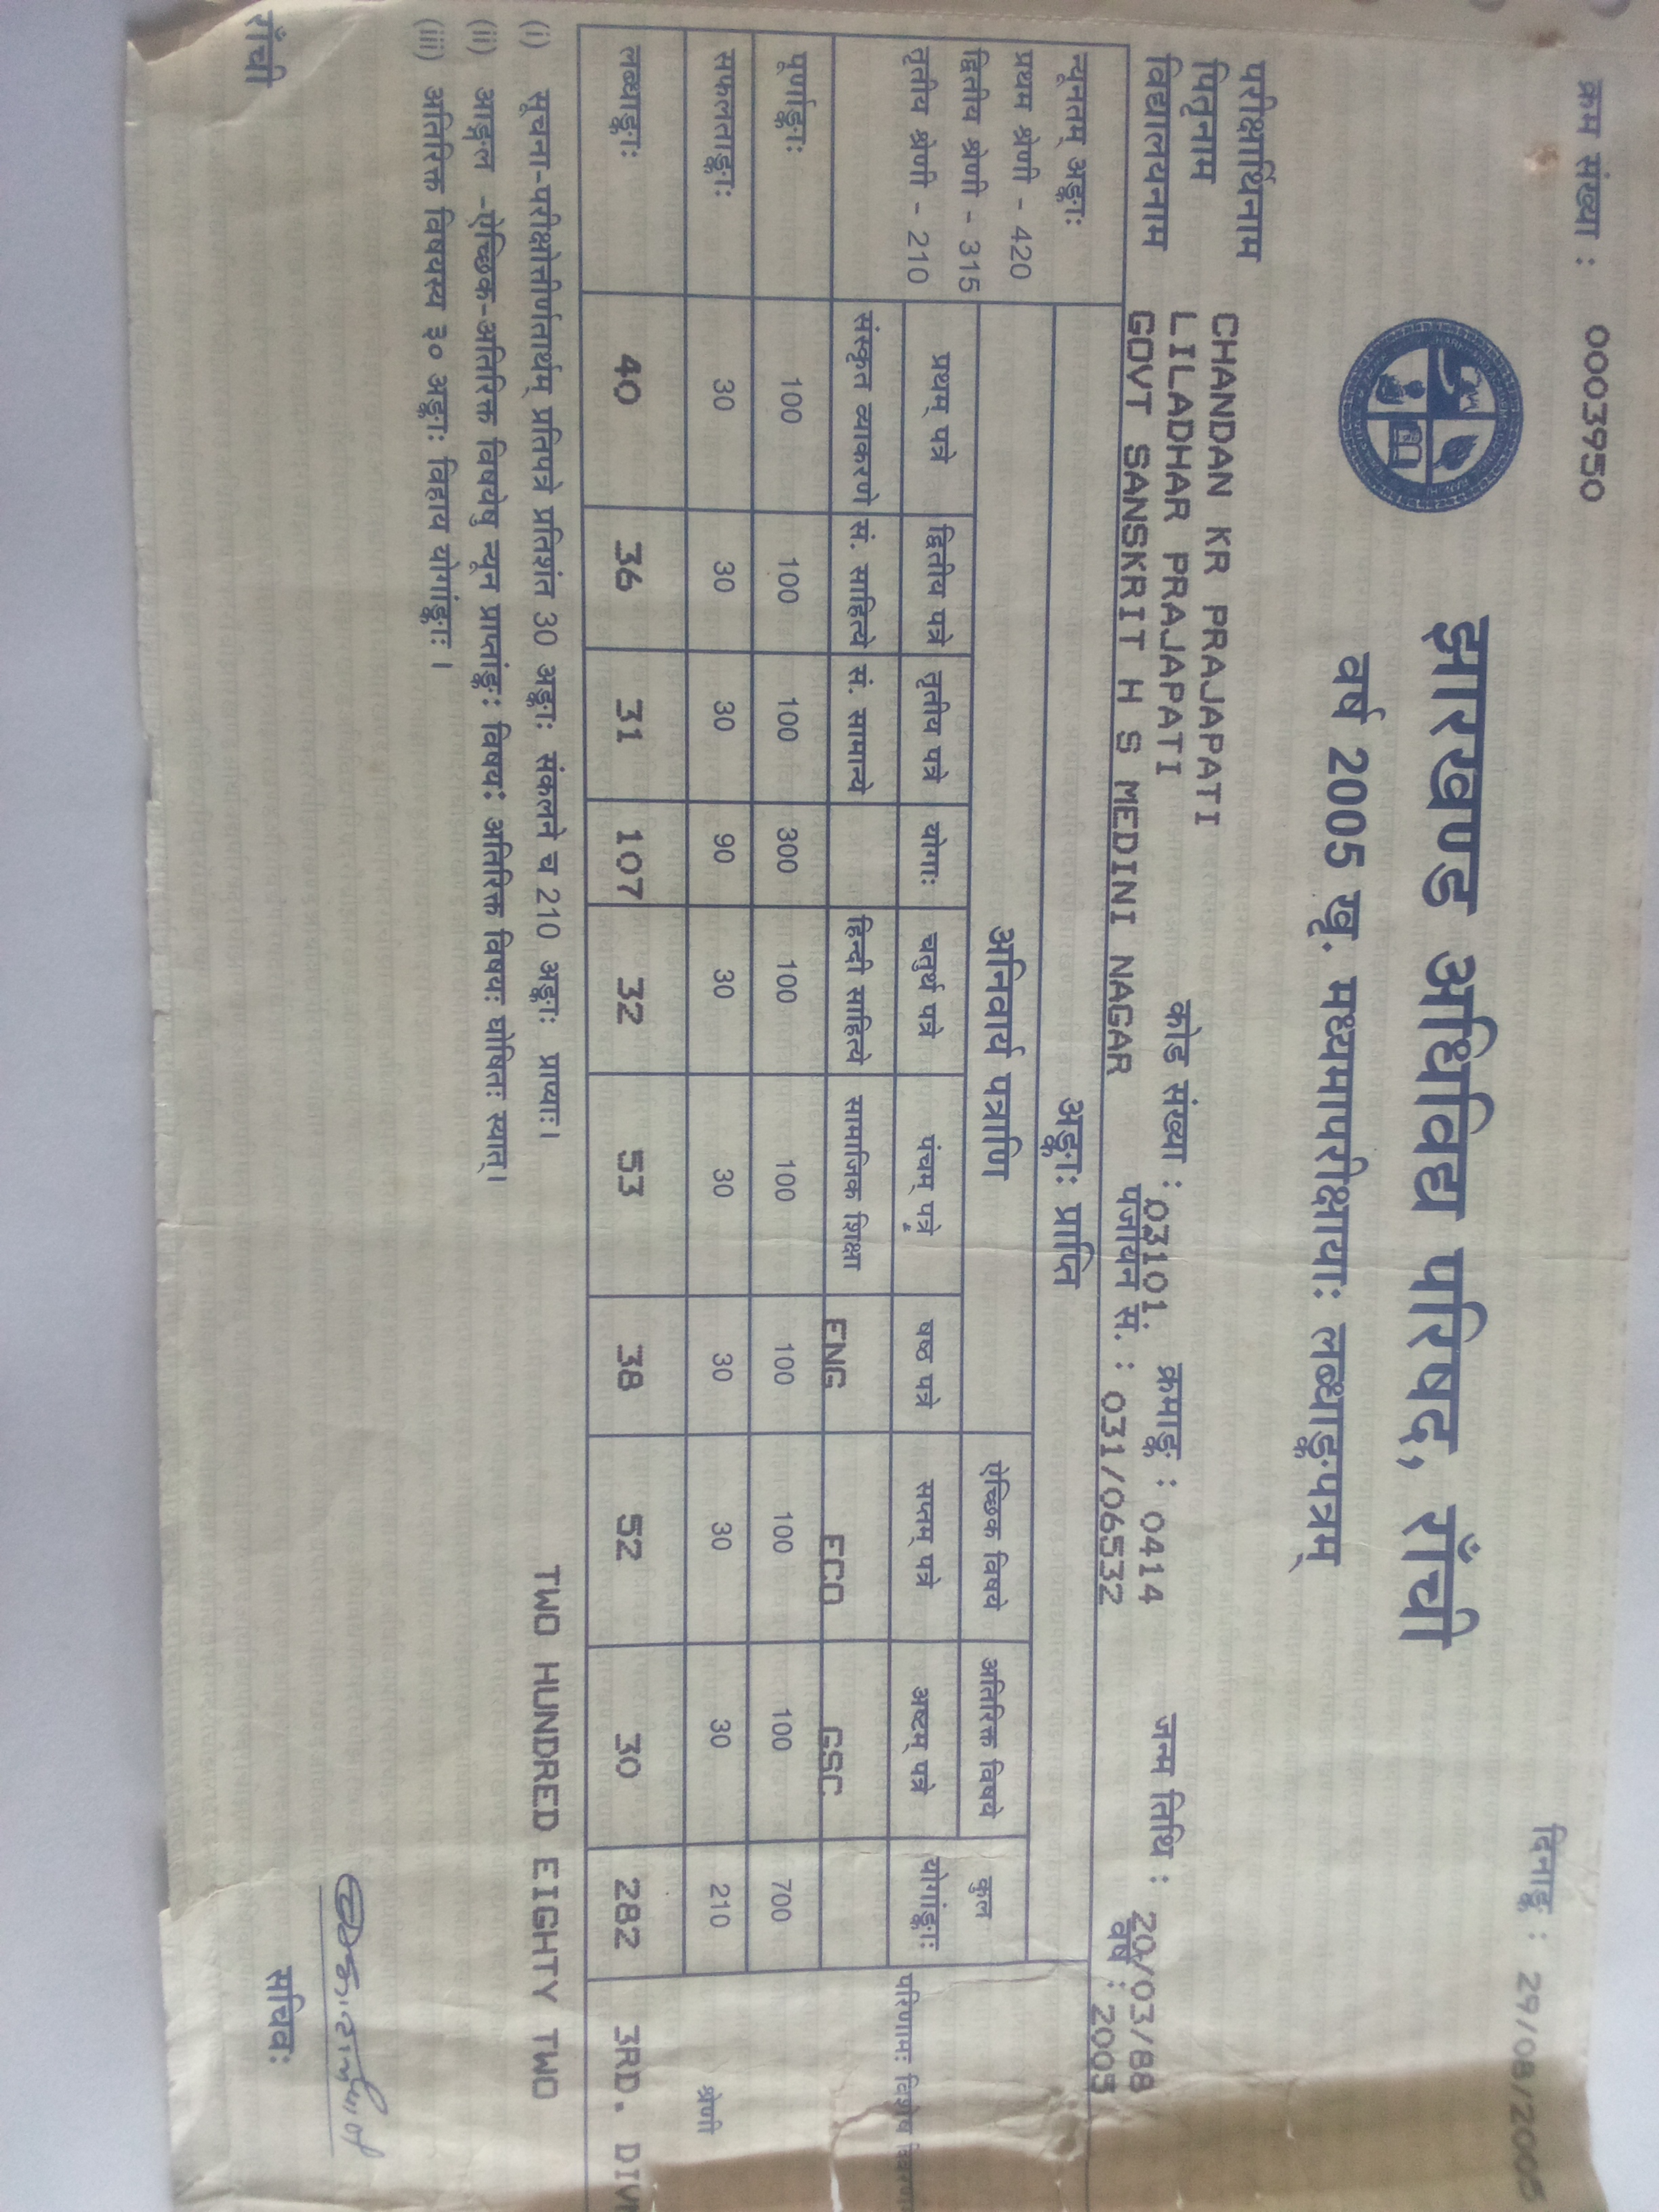 क्रम संख्या : 0003950
दिनाङ्क : 29/08/2005
झारखण्ड अधिविद्य परिषद, राँची
वर्ष 2005 खृ. मध्यमापरीक्षायाः लब्धाङ्कपत्रम्
परीक्षार्थिनाम CHANDAN KR PRAJAPATI
पितृनाम LILADHAR PRAJAPATI कोड संख्या : 03101. क्रमाङ्क : 0414 जन्म तिथि : 20/03/88
विद्यालयनाम GOVT SANSKRIT H S MEDINI NAGAR पंजीयन सं. : 031/06532 वर्ष : 2005
न्यूनतम् अङ्काः अङ्काः प्राप्ति
प्रथम श्रेणी - 420 अनिवार्य पत्राणि ऐच्छिक विषये अतिरिक्त विषये कुल
द्वितीय श्रेणी - 315
तृतीय श्रेणी - 210 प्रथम् पत्रे द्वितीय पत्रे तृतीय पत्रे योगाः चतुर्थ पत्रे पंचम् पत्रे षष्ठ पत्रे सप्तम् पत्रे अष्टम् पत्रे योगांङ्काः परिणामः विशेष विवरण
संस्कृत व्याकरणे सं. साहित्ये सं. सामान्ये हिन्दी साहित्ये सामाजिक शिक्षा ENG ECO GSC
पूर्णाङ्काः 100 100 100 300 100 100 100 100 100 700
सफलताङ्काः 30 30 30 90 30 30 30 30 30 210 श्रेणी
लब्धाङ्काः 40 36 31 107 32 53 38 52 30 282 3RD. DIVN
(i) सूचना-परीक्षोत्तीर्णतार्थम् प्रतिपत्रे प्रतिशंत 30 अङ्काः संकलने च 210 अङ्काः प्राप्याः। TWO HUNDRED EIGHTY TWO
(ii) आङ्गल -ऐच्छिक-अतिरिक्त विषयेषु न्यून प्राप्तांङ्कः विषयः अतिरिक्त विषयः घोषितः स्यात्।
(iii) अतिरिक्त विषयस्य ३० अङ्काः विहाय योगांङ्काः ।
राँची
सचिवः